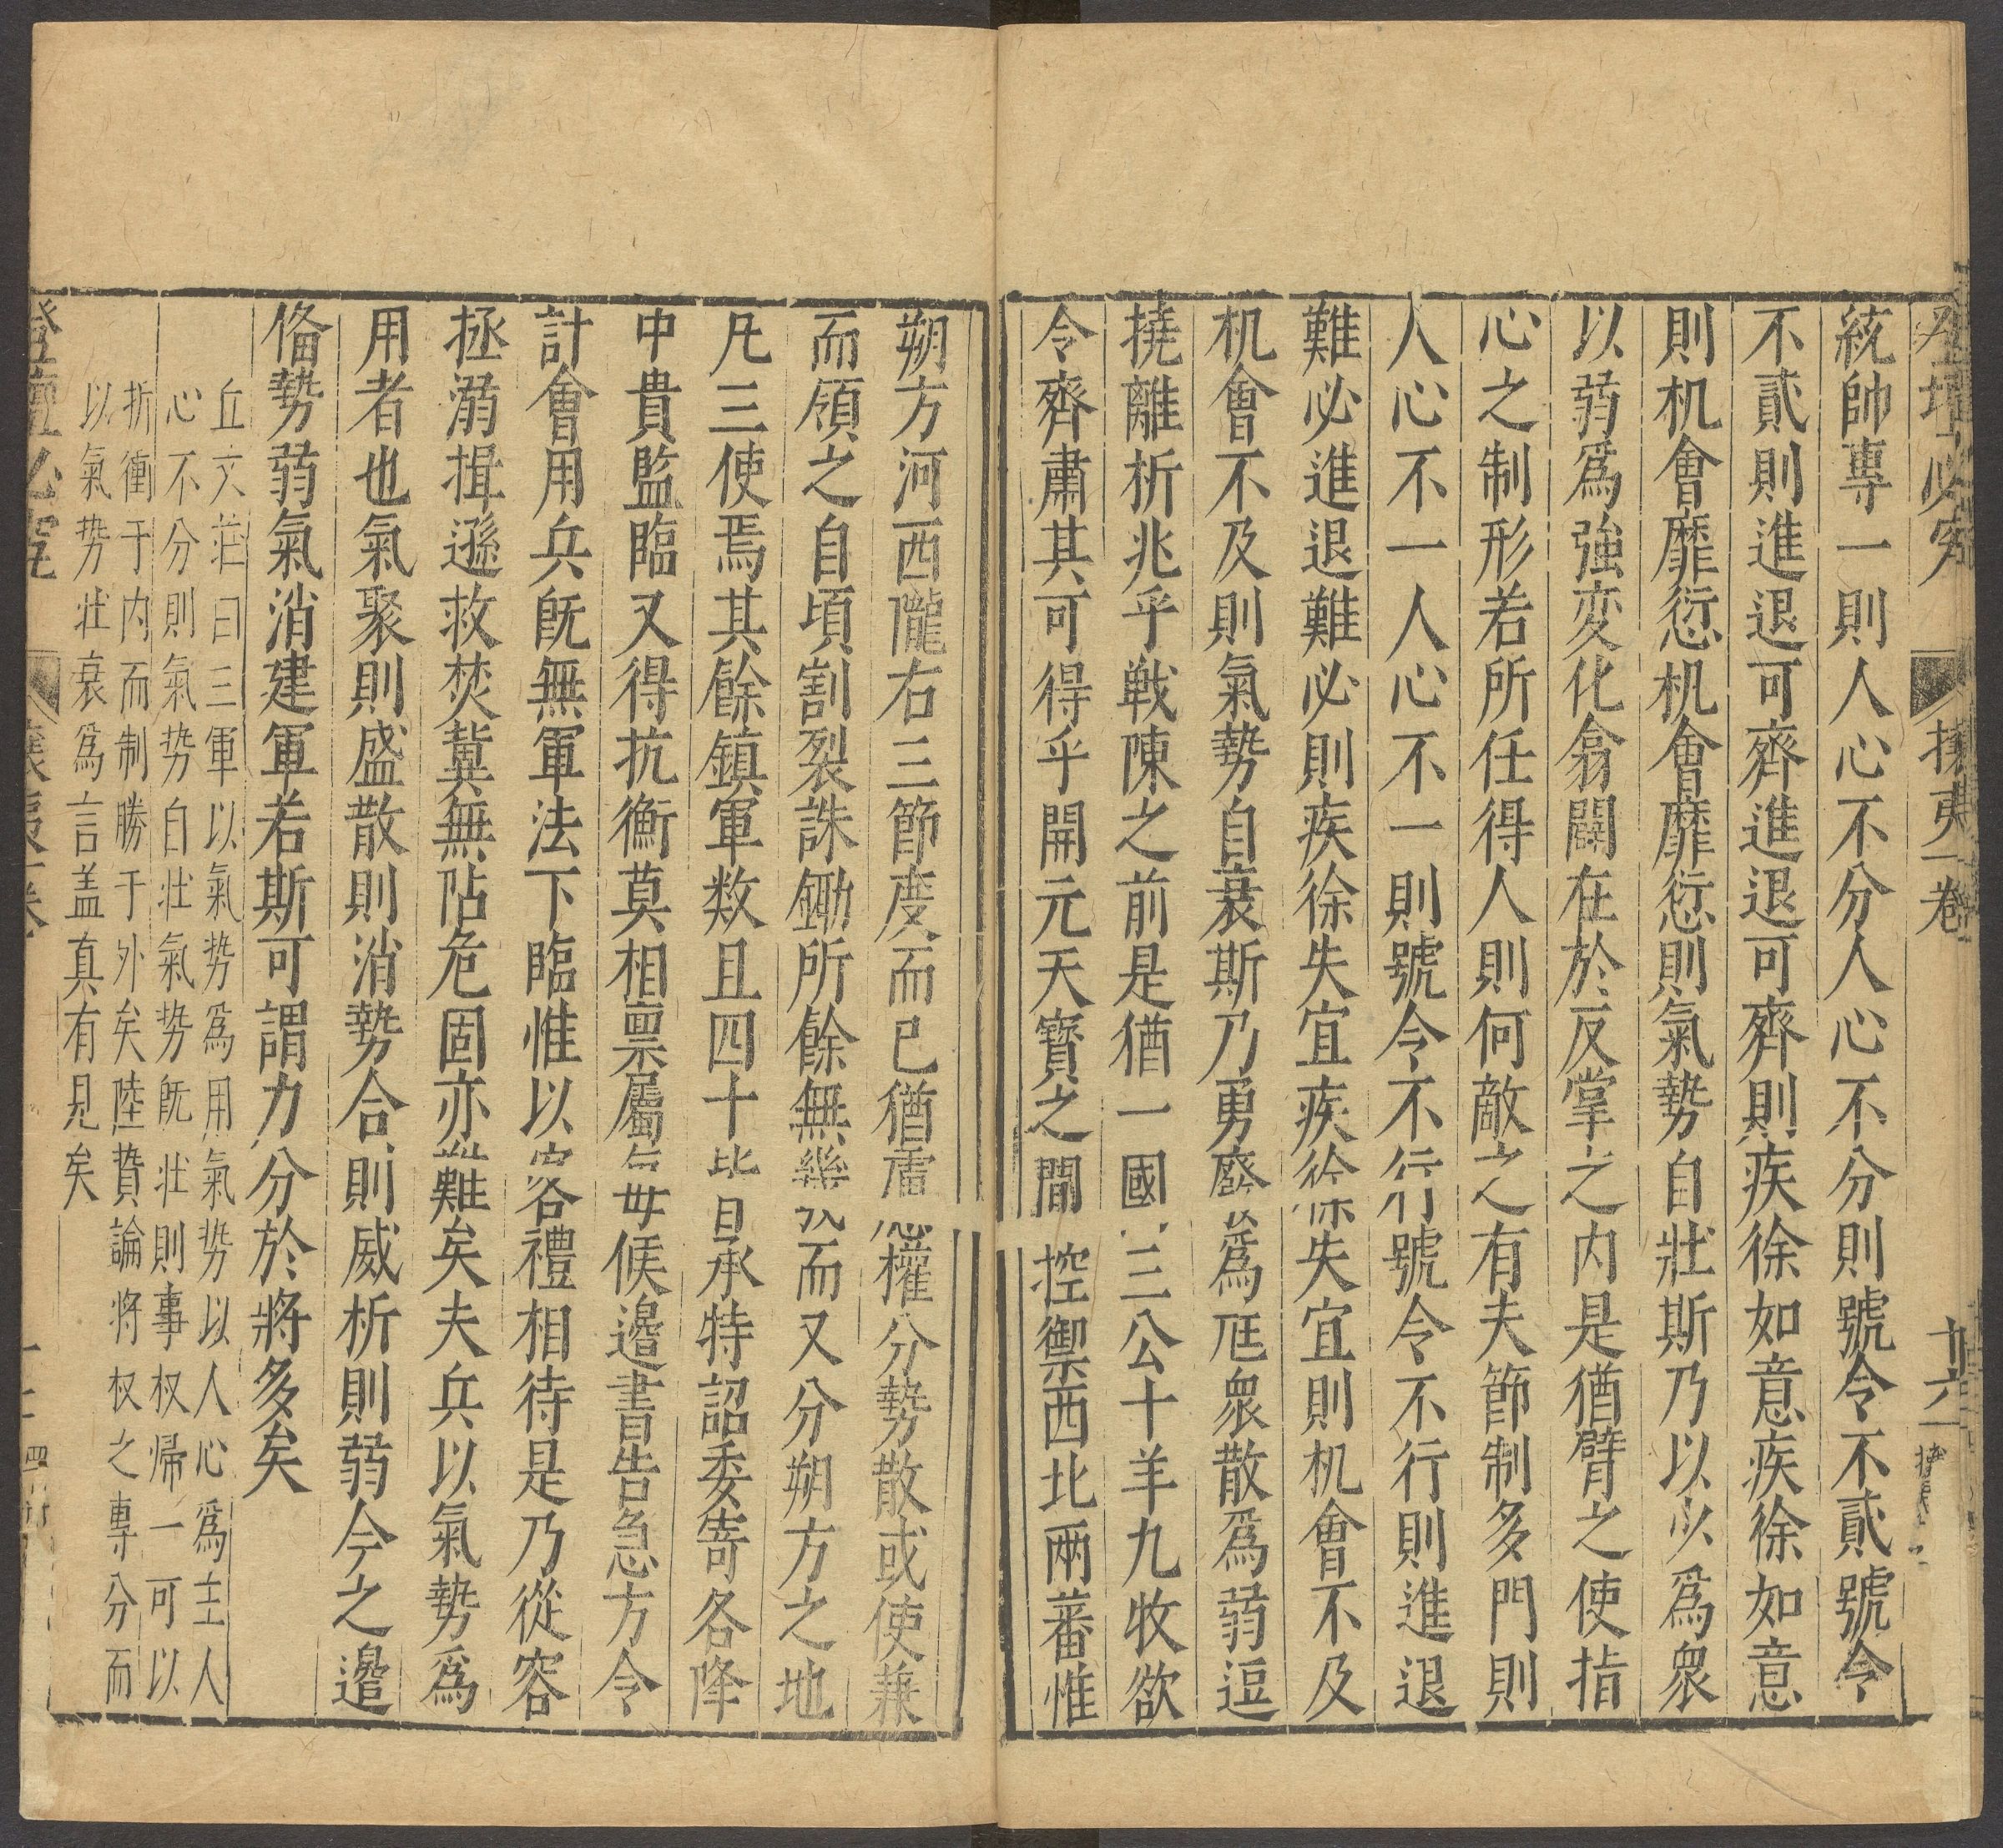 登壇必究
攘夷一卷
統帥專一則人心不分人心不分則號令不貳號令
不貳則進退可齊進退可齊則疾徐如意疾徐如意
則机會靡愆机會靡愆則氣勢自壯斯乃以少爲衆
以弱爲強变化翕闢在於反掌之内是猶臂之使指
心之制形若所任得人則何敵之有夫節制多門則
人心不一人心不一則號令不行號令不行則進退
難必進退難必則疾徐失宜疾徐失宜則机會不及
机會不及則氣勢自衰斯乃勇廢爲尫衆散爲弱逗
撓離析兆乎戰陳之前是猶一國三公十羊九牧欲
令齊肅其可得乎開元天寶之間控禦西北兩蕃惟
朔方河西隴右三節度而已猶慮權分勢散或使兼
而領之自頃割裂誅鋤所餘無幾而又分朔方之地
凡三使焉其餘鎮軍数且四十皆承特詔委寄各降
中貴監臨又得抗衡莫相禀屬每候邉書告急方令
計會用兵既無軍法下臨惟以客禮相待是乃從容
拯溺揖遜救焚冀無阽危固亦難矣夫兵以氣勢爲
用者也氣聚則盛散則消勢合則威析則弱今之邉
俻勢弱氣消建軍若斯可謂力分於將多矣
丘文莊曰三軍以氣势爲用氣势以人心爲主人
心不分則氣势自壮氣势既壮則事权帰一可以
折衝于内而制勝于外矣陸贄論將权之專分而
以氣势壮衰爲言盖真有見矣
登壇必究